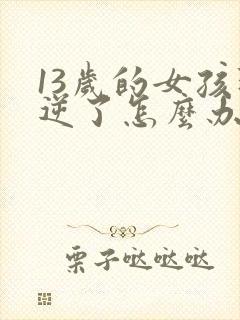 13歲的女孩
逆了怎麼办
栗子哒哒哒